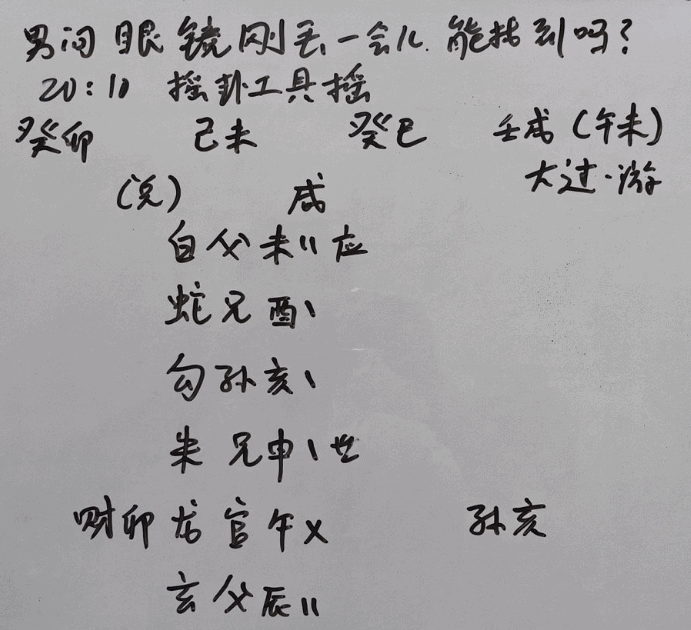 男问 眼镜刚丢一会儿. 能找到吗?
20:10 摇卦工具摇
癸卯 己未 癸巳 壬戌(午未)
大过·游
(兑) 咸
白父未〃应
蛇兄酉、
勾孙亥、
朱兄申、世
财卯 龙官午× 孙亥
玄父辰〃